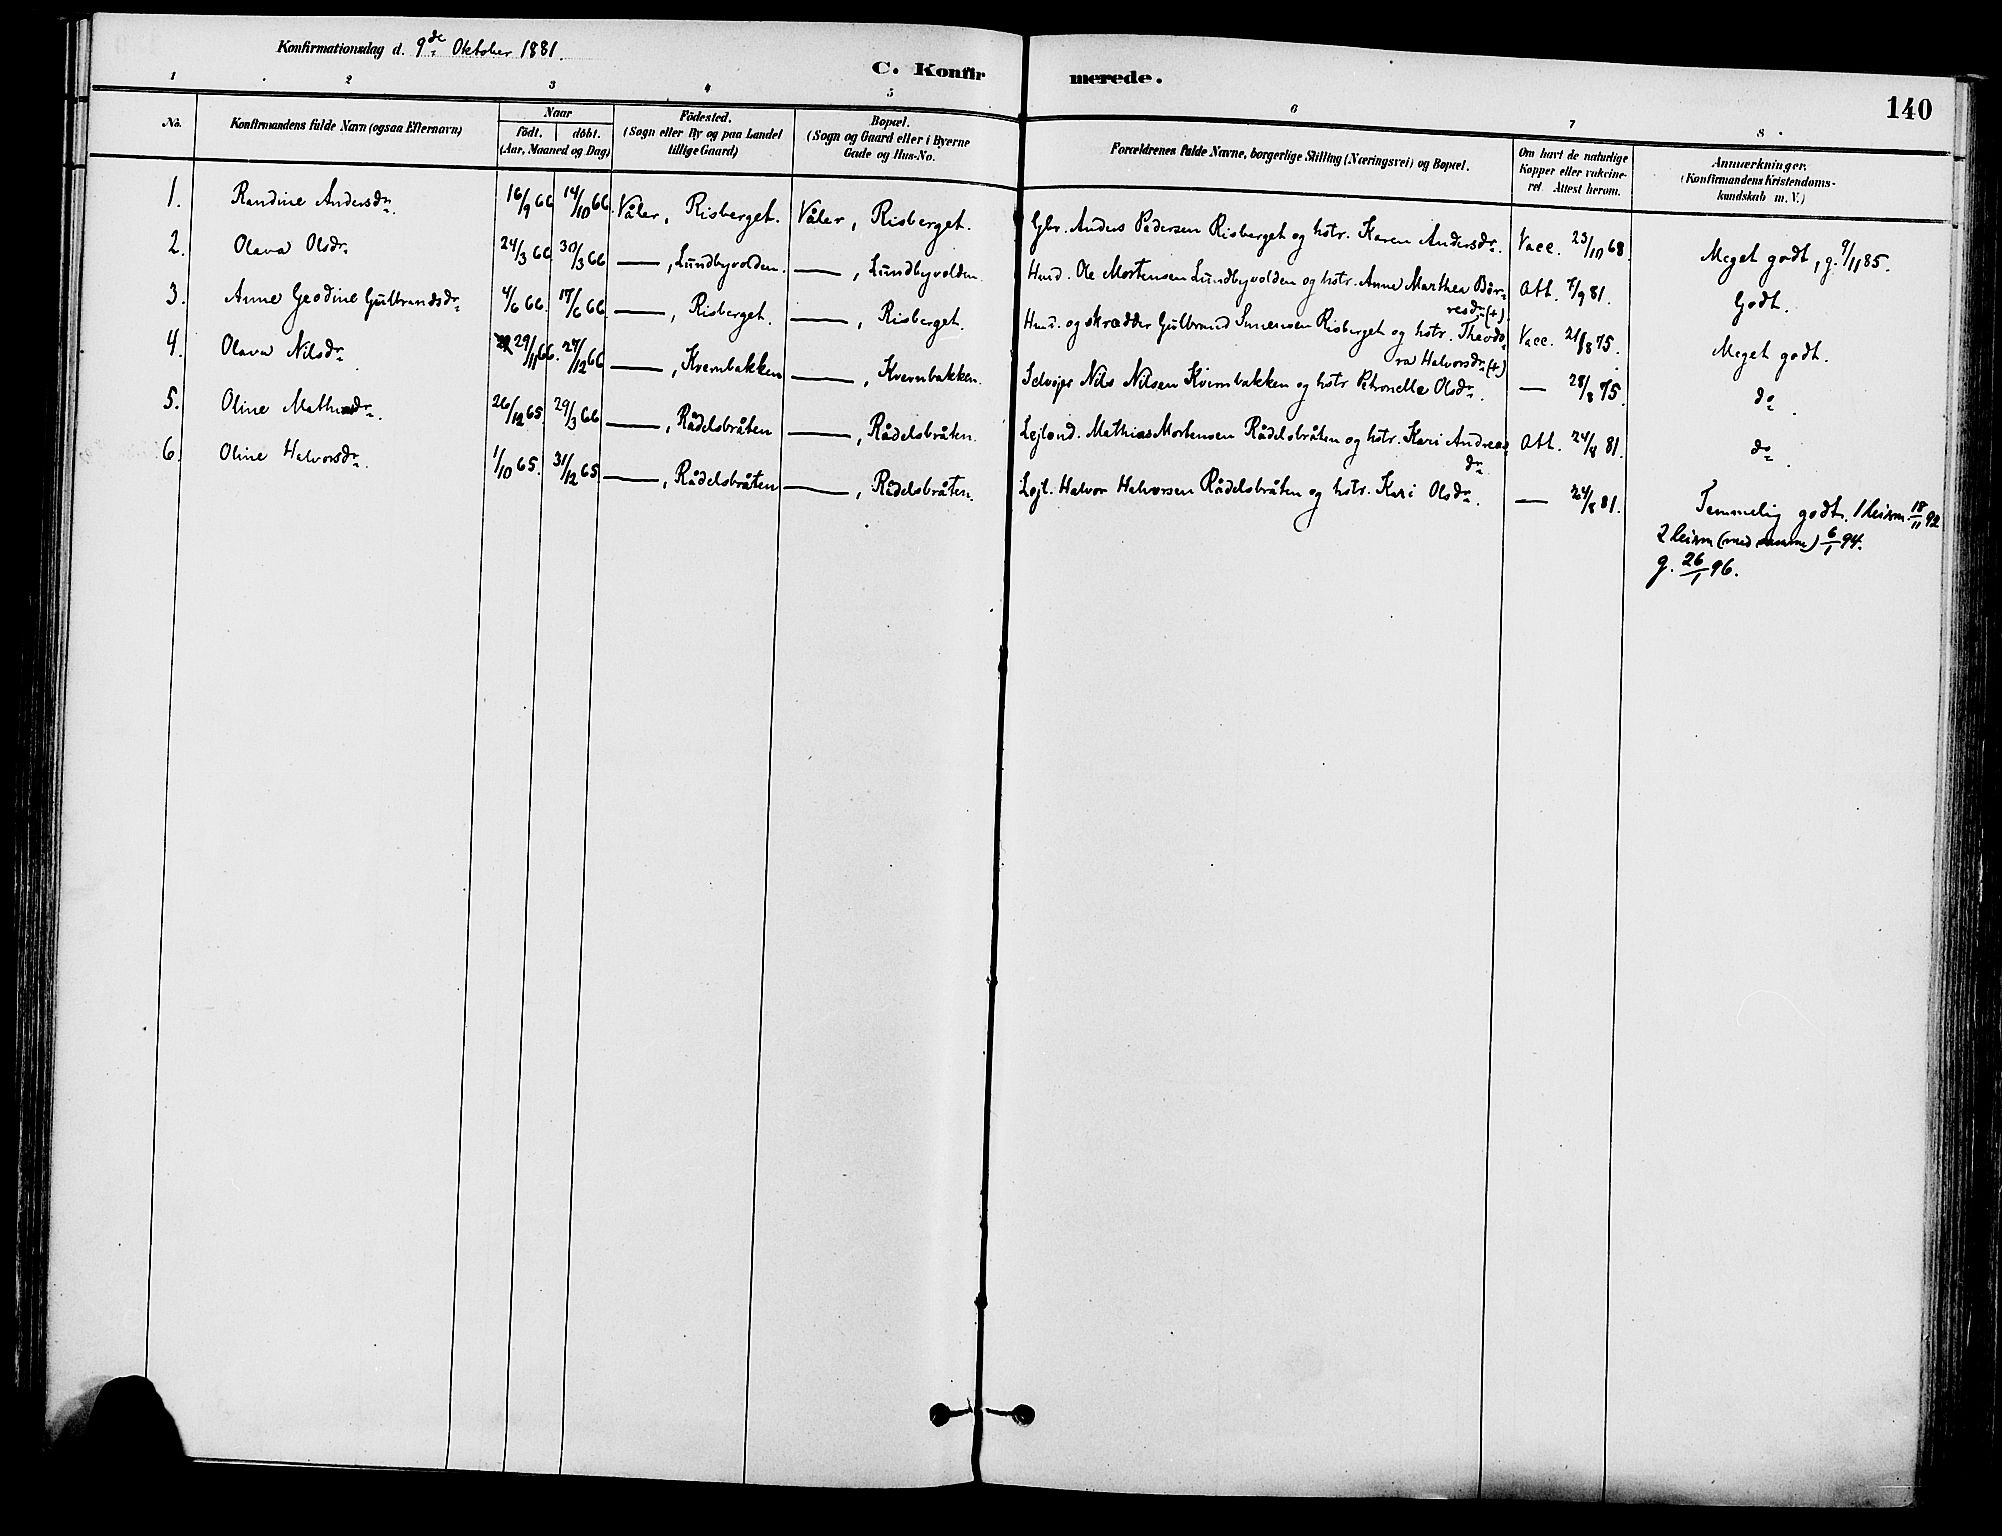 Konfirmationsdag d. 9de Oktober 1881.
C. Konfirmerede.
140
1 2 3 4 5 6 7 8
No.
Konfirmandens fulde Navn (ogsaa Efternavn)
Naar
födt. döbt.
(Aar, Maaned og Dag)
Födested.
(Sogn eller By og paa Landet
tillige Gaard)
Bopæl.
(Sogn og Gaard eller i Byerne
Gade og Hus-No.
Forældrenes fulde Navne, borgerlige Stilling (Næringsvei) og Bopæl.
Om havt de naturlige
Kopper eller vakcine-
ret. Attest herom.
Anmærkninger.
(Konfirmandens Kristendoms-
kundskab m. V.)
1. Randine Andersdr. 16/9 66 14/10 66. Våler, Risberget. Våler, Risberget. Gbr. Anders Pedersen Risberget og hstr. Karen Andersdr. Vacc. 23/10 68. Meget godt, g. 9/11 85.
2. Olava Olsdr. 24/3 66 30/3 66 —, Lundbyvolden. —, Lundbyvolden. Husd. Ole Mortensen Lundbyvolden og hstr. Anne Marthea Bör-
resdr. (+) Att. 7/9 81. Godt.
3. Anne Geodine Gulbrandsdr. 4/6 66. 17/6 66. —, Risberget. —, Risberget. Husd. og skrædder Gulbrand Simensen Risberget og hstr. Theodo-
ra Halvorsdr. (+) Vacc. 21/8 75. Meget godt.
4. Olava Nilsdr. 29/11 66. 27/12 66 —, Kvernbakken —, Kvernbakken. Selvejer Nils Nilsen Kvernbakken og hstr. Petronelle Olsdr. — 28/8 75. do.
5. Oline Mathiasdr. 26/12 65. 29/3 66 —, Rådelsbråten —, Rådelsbråten. Lejlend. Mathias Mortensen Rådelsbråten og hstr. Kari Andreas-
dr. Att. 24/8 81. do.
6. Oline Halvorsdr. 1/10 65. 31/12 65 —, Rådelsbråten —, Rådelsbråten. Lejl. Halvor Halvorsen Rådelsbråten og hstr. Kari Olsdr. — 24/8 81. Temmelig godt. 1 leierm. 18/11 92
2 leierm (med samme) 6/1 94.
g. 26/1 96.